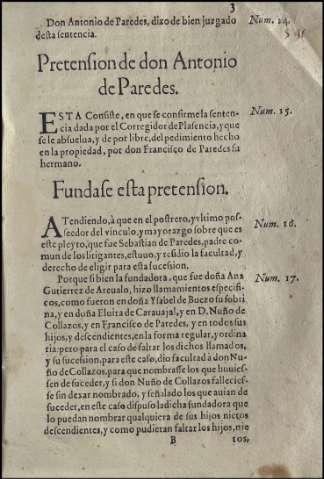 3
Don Antonio de Paredes, dixo de bien juzgado Num. 14.
desta sentencia.
Pretension de don Antonio
de Paredes.
ESTA Consiste, en que se confirme la senten- Num. 15.
cia dada por el Corregidor de Plasencia, y que
se le absuelua, y de por libre, del pedimiento hecho
en la propiedad, por don Francisco de Paredes su
hermano.
Fundase esta pretension.
ATendiendo, à que en el postrero, y vltimo pos-
seedor del vinculo, y mayorazgo sobre que es Num. 16.
este pleyto, que fue Sebastian de Paredes, padre co-
mun de los litigantes, estuuo, y residio la facultad, y
derecho de eligir para esta sucession.
Porque si bien la fundadora, que fue doña Ana Num. 17.
Gutierrez de Areualo, hizo llamamientos especifi-
cos, como fueron en doña Ysabel de Buezo su sobri
na, y en doña Eluira de Carauajal, y en D. Nuño de
Collazos, y en Francisco de Paredes, y en todos sus
hijos, y descendientes, en la forma regular, y ordina
ria: pero para el caso de faltar los dichos llamados,
y su sucession, para este caso, dio facultad à don Nu-
ño de Collazos, para que nombrasse los que huuies-
sen de suceder, y si don Nuño de Collazos falleciès-
se sin dexar nombrado, y señalado los que auian de
suceder, en este caso dispuso la dicha fundadora que
lo puedan nombrar qualquiera de sus hijos nietos
descendientes, y como pudieran faltar los hijos, nie
B tos,